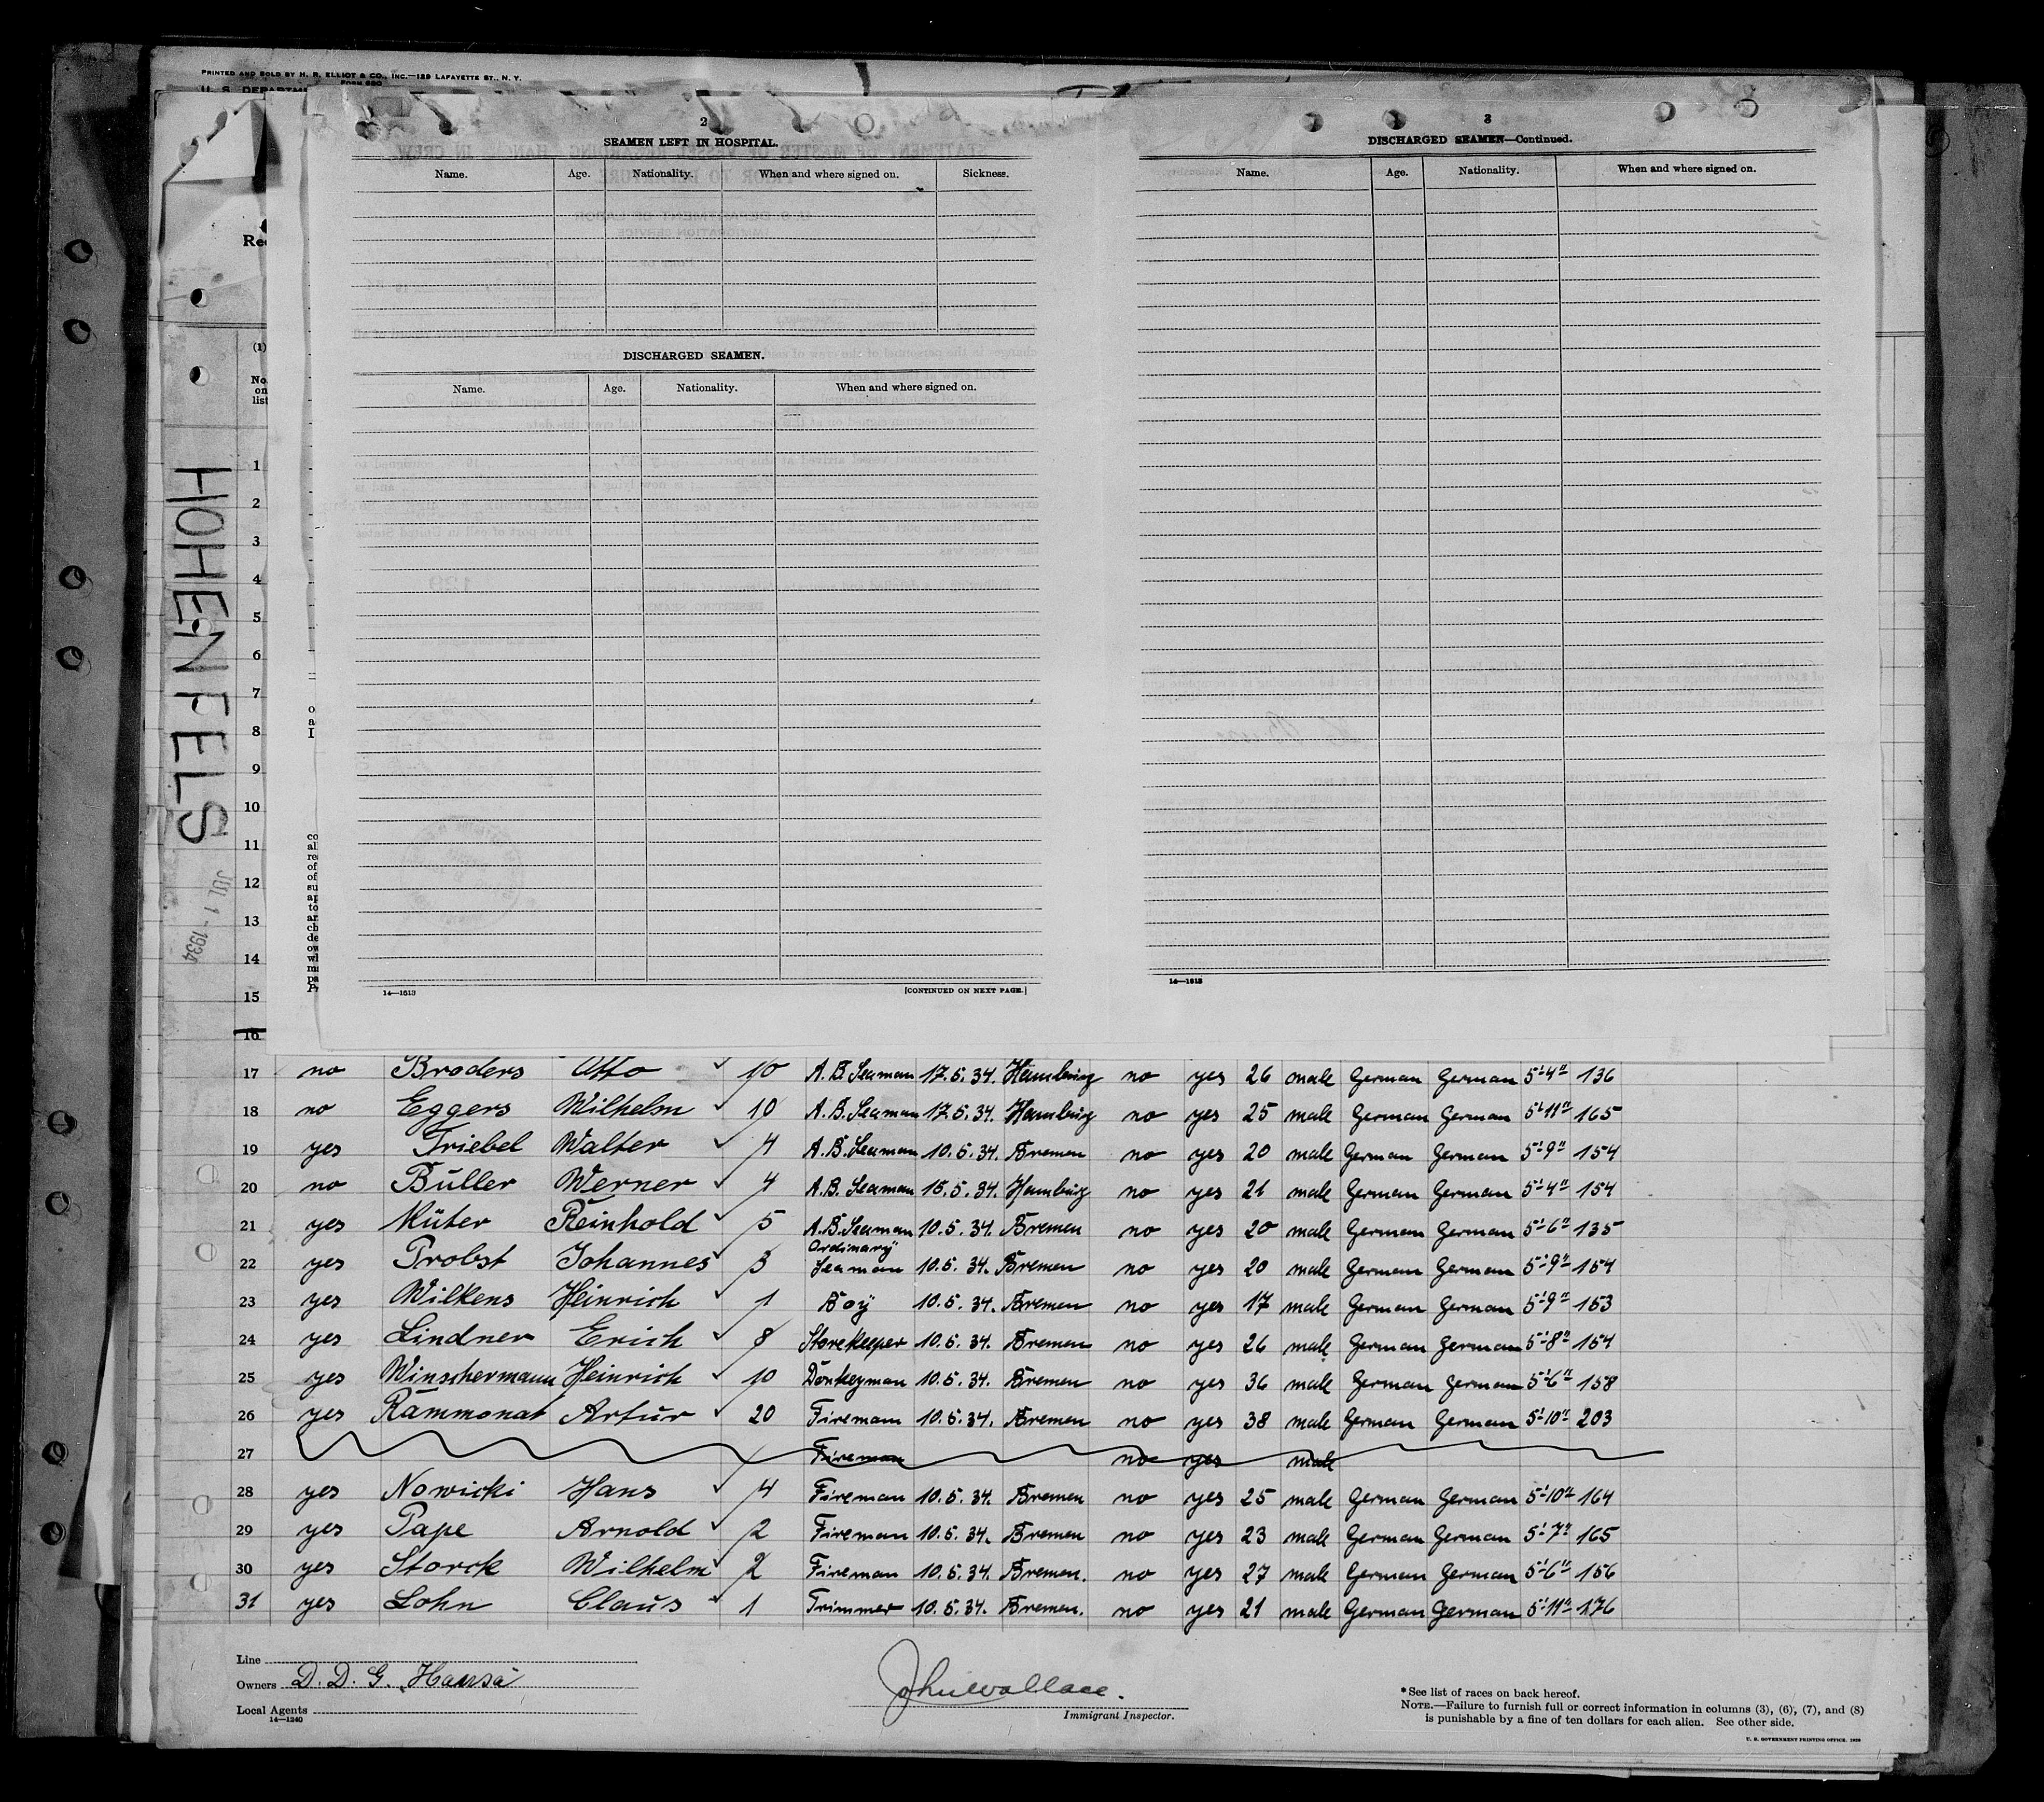 PRINTED AND SOLD BY H. R. ELLIOT & CO., INC.—129 LAFAYETTE ST., N. Y.
FORM 680
U. S. DEPARTM
2
SEAMEN LEFT IN HOSPITAL.
Name. Age. Nationality. When and where signed on. Sickness.
DISCHARGED SEAMEN.
Name. Age. Nationality. When and where signed on.
14—1613 [CONTINUED ON NEXT PAGE.]
3
DISCHARGED SEAMEN—Continued.
Name. Age. Nationality. When and where signed on.
14—1613
HOHENFELS
JUL 1 - 1934
(1)
No.
on
list
1
2
3
4
5
6
7
8
9
10
11
12
13
14
15
16
17 no Broders Otto 10 A. B. Seaman 17. 5. 34. Hamburg no yes 26 male German German 5'-4" 136
18 no Eggers Wilhelm 10 A. B. Seaman 17. 5. 34. Hamburg no yes 25 male German German 5'-11" 165
19 yes Triebel Walter 4 A. B. Seaman 10. 5. 34. Bremen no yes 20 male German German 5'-9" 154
20 no Büller Werner 4 A. B. Seaman 15. 5. 34. Hamburg no yes 21 male German German 5'-4" 154
21 yes Müter Reinhold 5 A. B. Seaman 10. 5. 34. Bremen no yes 20 male German German 5'-6" 135
22 yes Probst Johannes 3 Ordinary Seaman 10. 5. 34. Bremen no yes 20 male German German 5'-9" 154
23 yes Wilkens Heinrich 1 Boy 10. 5. 34. Bremen no yes 17 male German German 5'-9" 153
24 yes Lindner Erich 8 Storekeeper 10. 5. 34. Bremen no yes 26 male German German 5'-8" 154
25 yes Winschermann Heinrich 10 Donkeyman 10. 5. 34. Bremen no yes 36 male German German 5'-6" 158
26 yes Rammonat Artur 20 Fireman 10. 5. 34. Bremen no yes 38 male German German 5'-10" 203
27 Fireman no yes male
28 yes Nowicki Hans 4 Fireman 10. 5. 34. Bremen no yes 25 male German German 5'-10" 164
29 yes Pape Arnold 2 Fireman 10. 5. 34. Bremen no yes 23 male German German 5'-7" 165
30 yes Storck Wilhelm 2 Fireman 10. 5. 34. Bremen. no yes 27 male German German 5'-6" 156
31 yes Lohn Claus 1 Trimmer 10. 5. 34. Bremen. no yes 21 male German German 5'-11" 176
Line
Owners D. D. G. „Hansa"
Local Agents
14—1240
John Wallace.
Immigrant Inspector.
*See list of races on back hereof.
NOTE.—Failure to furnish full or correct information in columns (3), (6), (7), and (8)
is punishable by a fine of ten dollars for each alien. See other side.
U. S. GOVERNMENT PRINTING OFFICE. 1933